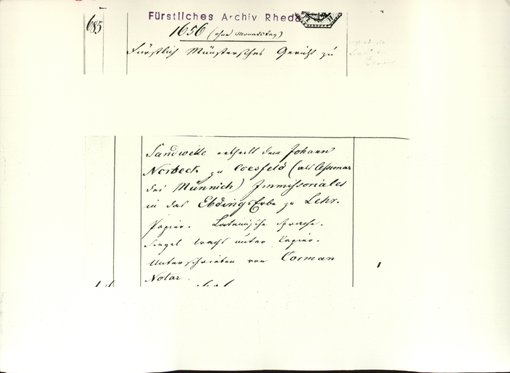 Fürstliches Archiv Rheda
685
1656 (ohne Monatstag)
Fürstlich Münstersches Gericht zu
Sandwelle ertheilt dem Johann
Norbeck zu Coesfeld (als
des Münnich) Immissoriales
in das Ebbing Erbe zu Lehr.
Papier. Lateinische Sprache.
Siegel Wachs unter Papier.
Unterschrieben von Corman
Notar.